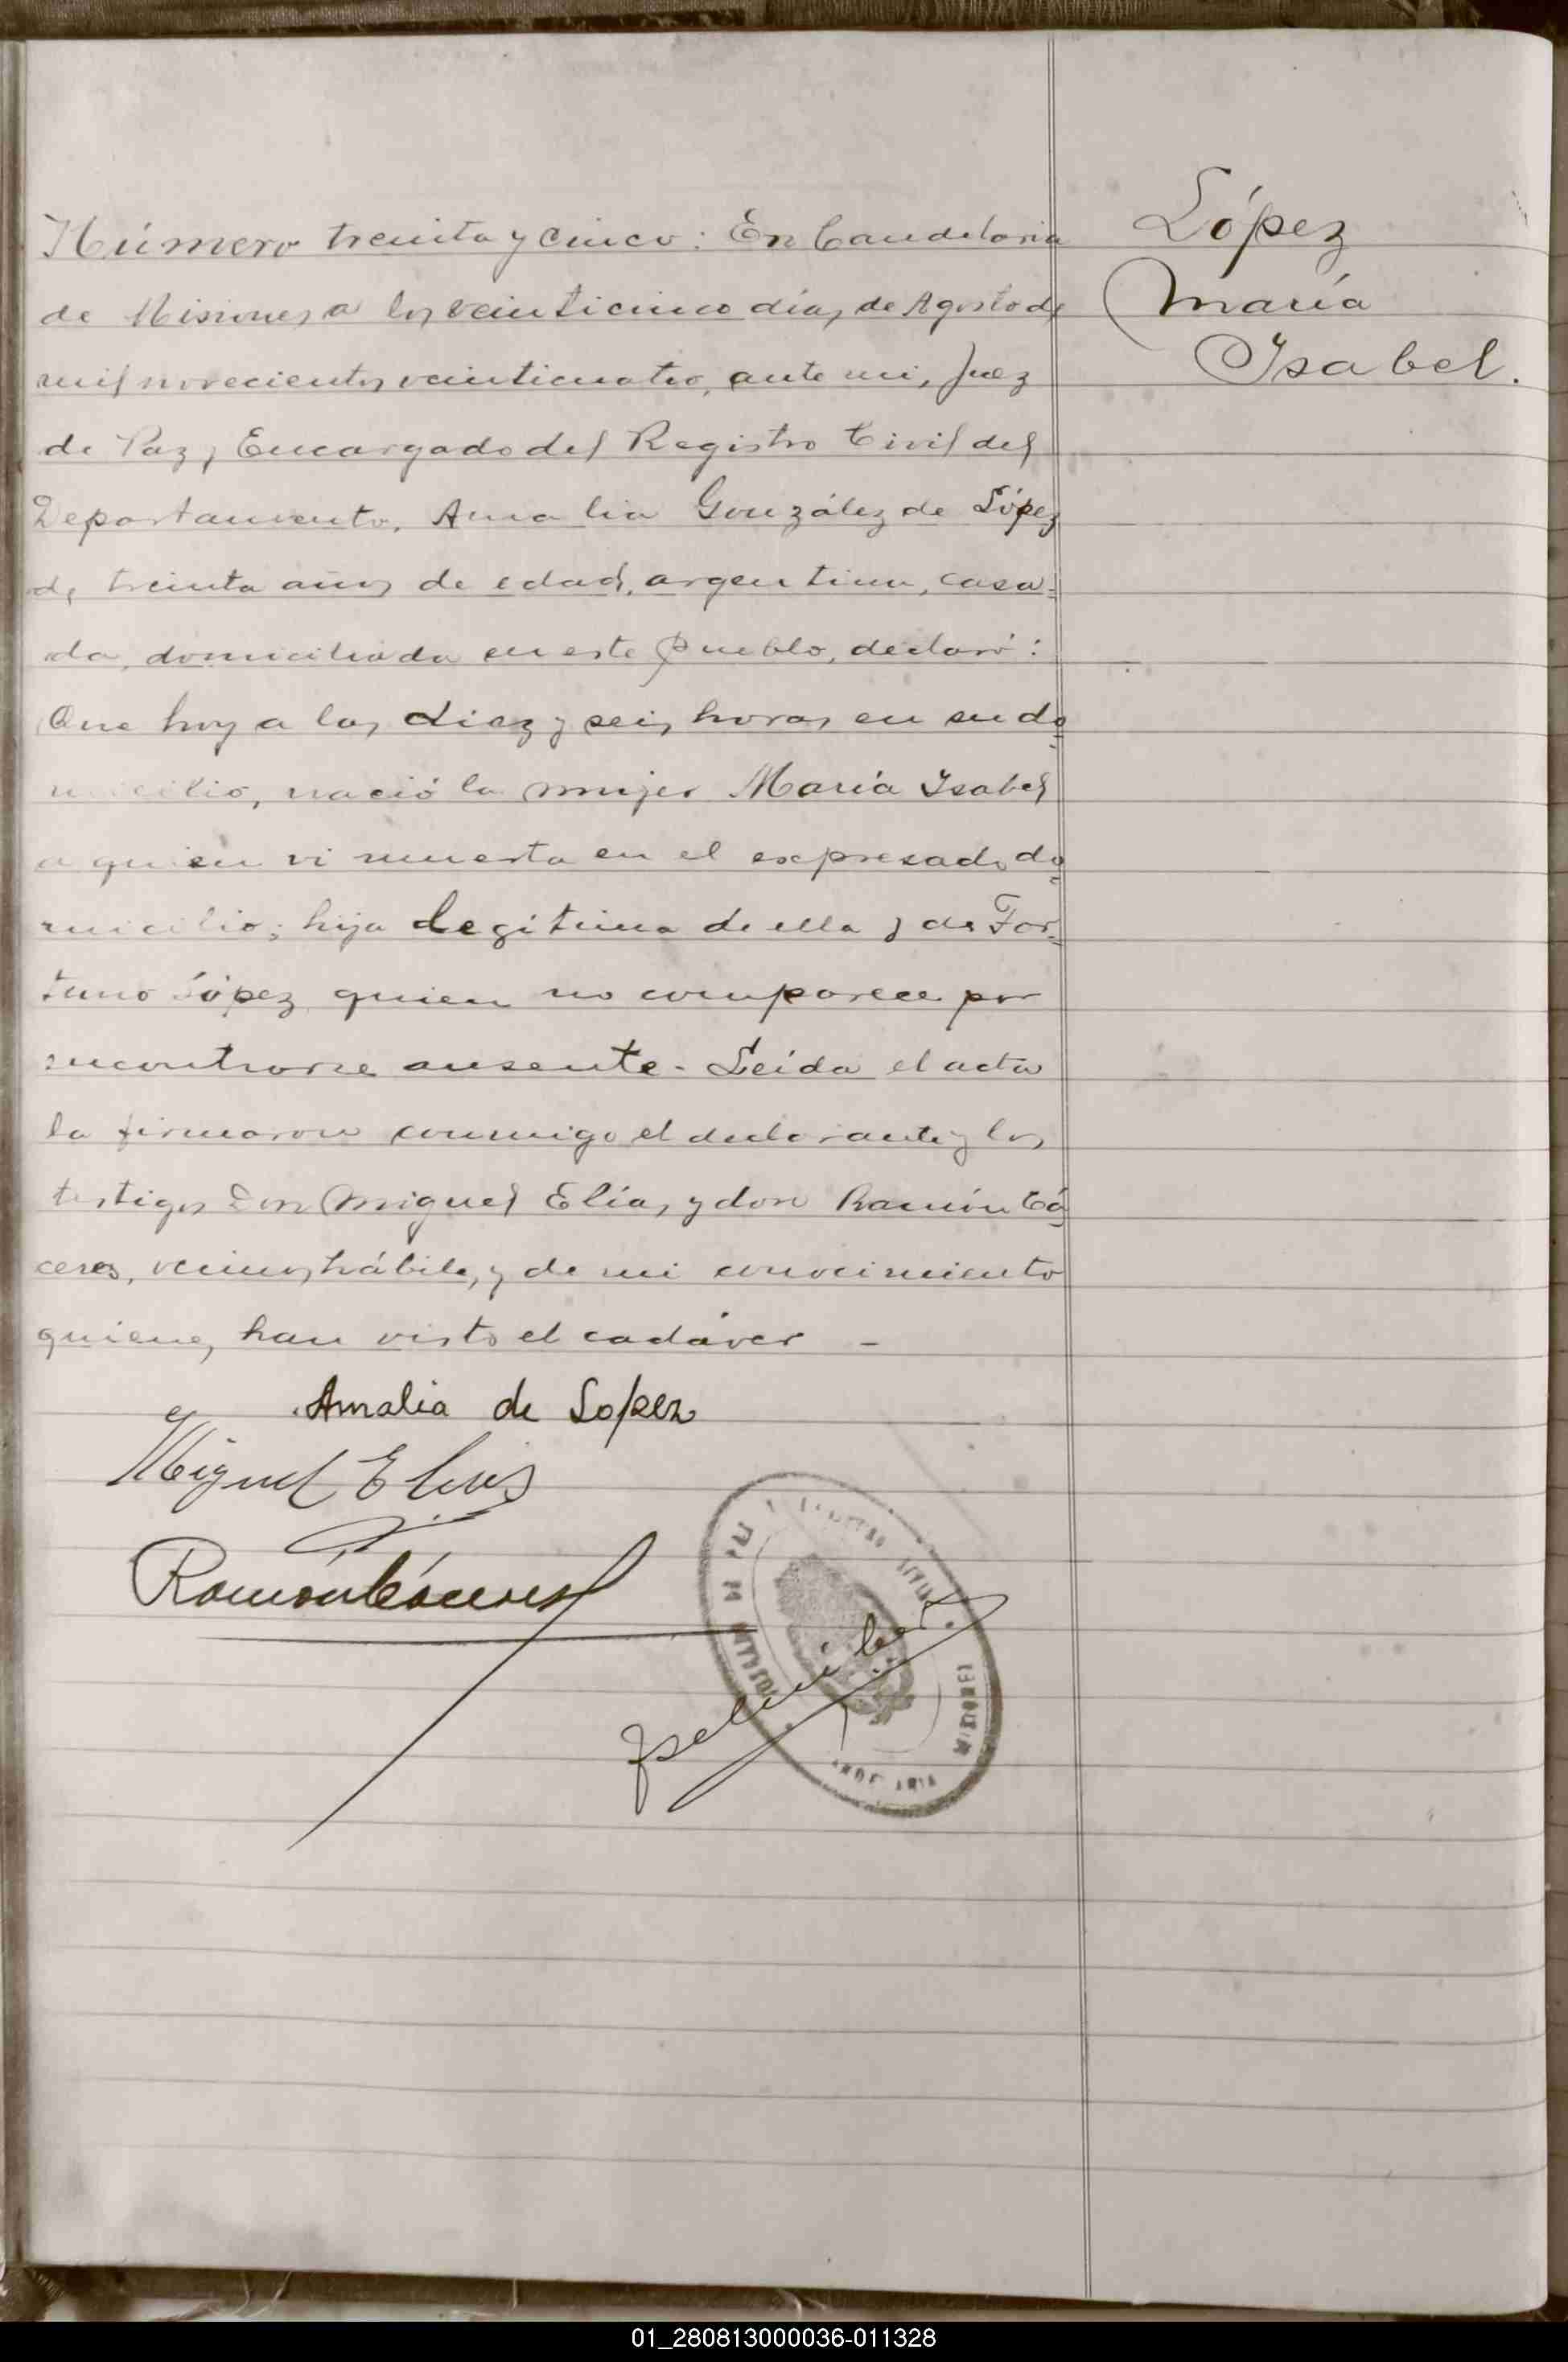 Número treinta y cinco: En Candelaria
de Misiones a los veinticinco días de Agosto de
mil novecientos veinticuatro, ante mi, Juez
de Paz y Encargado del Registro Civil del
Departamento, Amalia González de López
de treinta años de edad, argentina, casa=
da, domiciliada en este pueblo, declaró:
Que hoy a las diez y seis horas en su do=
micilio, nació la mujer María Isabel
a quien vi muerta en el expresado do=
micilio; hija legítima de ella y de For=
tuno López quien no comparece por
encontrarse ausente. Leída el acta
la firmaron conmigo el declarante y los
testigos Don Miguel Elías y don Ramón Cá=
ceres, vecinos, hábiles y de mi conocimiento
quienes han visto el cadáver —
Amalia de Lopez
Miguel Elias
Ramón Cáceres
López
María
Isabel.
01_280813000036-011328